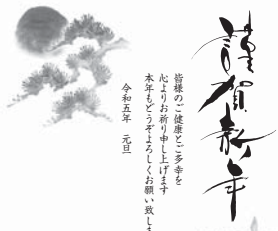 謹賀新年
皆様のご健康とご多幸を
心よりお祈り申し上げます
本年もどうぞよろしくお願い致しま
令和五年 元旦